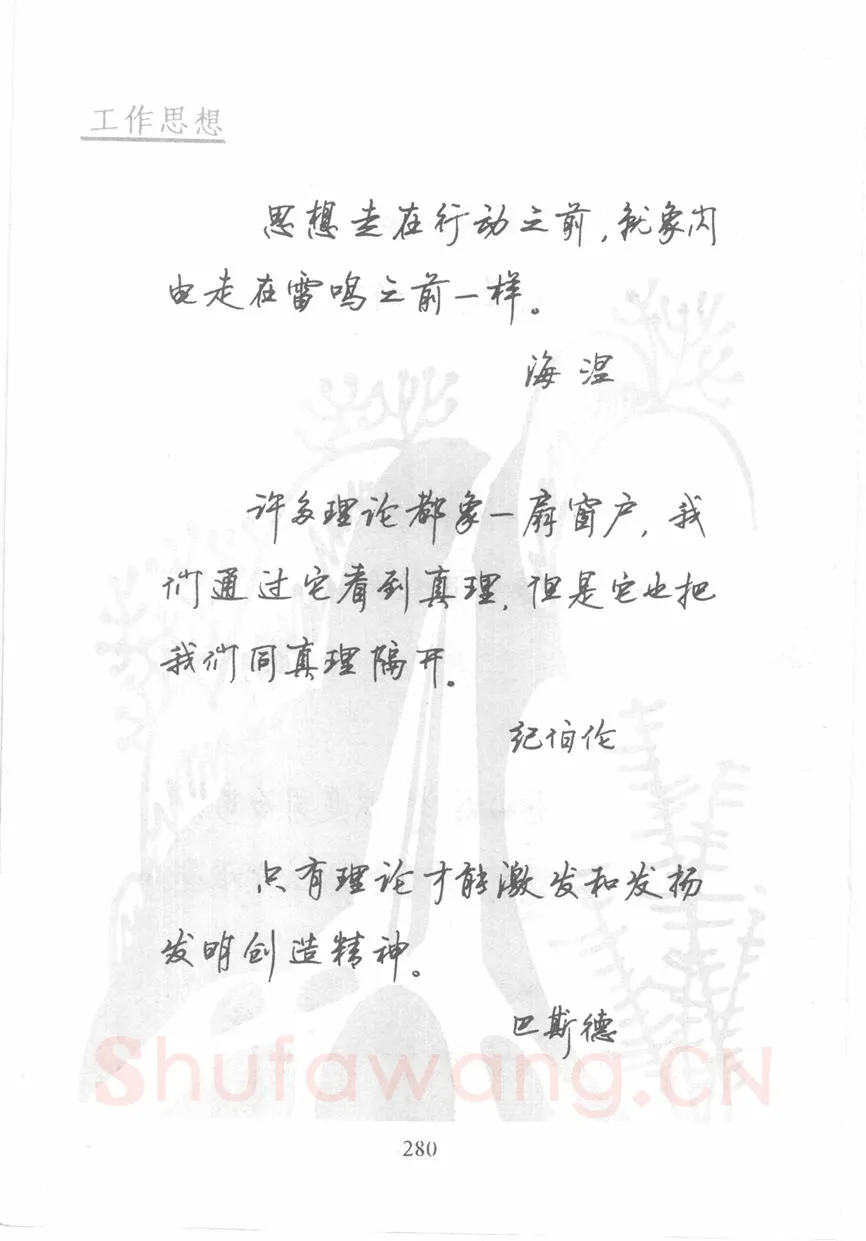 工作思想
思想走在行动之前，就象闪
电走在雷鸣之前一样。
海涅
许多理论都象一扇窗户，我
们通过它看到真理，但是它也把
我们同真理隔开。
纪伯伦
只有理论才能激发和发扬
发明创造精神。
巴斯德
Shufawang.CN
280